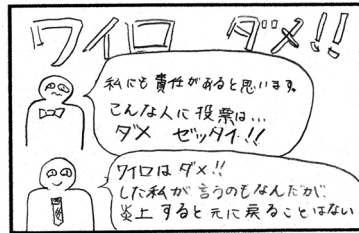 ワイロ ダメ!!
私にも責任があると思います。
こんな人に投票は…
ダメ ゼッタイ!!
ワイロはダメ!!
した私が言うのもなんだが
炎上すると元に戻ることはない